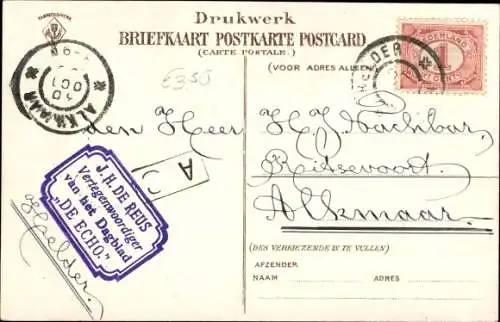 Drukwerk
BRIEFKAART POSTKARTE POSTCARD
(CARTE POSTALE.)
(VOOR ADRES ALLEEN)
NEDERLAND
1
CENT
HELDER
ALKMAAR
OCT
£3.50
den Heer
H. J. Nachbar,
Ritsevoort.
Alkmaar.
A
J. H. DE REUS
Vertegenwoordiger
van het Dagblad
"DE ECHO."
Helder.
(DES VERKIEZENDE IN TE VULLEN)
AFZENDER
NAAM
ADRES